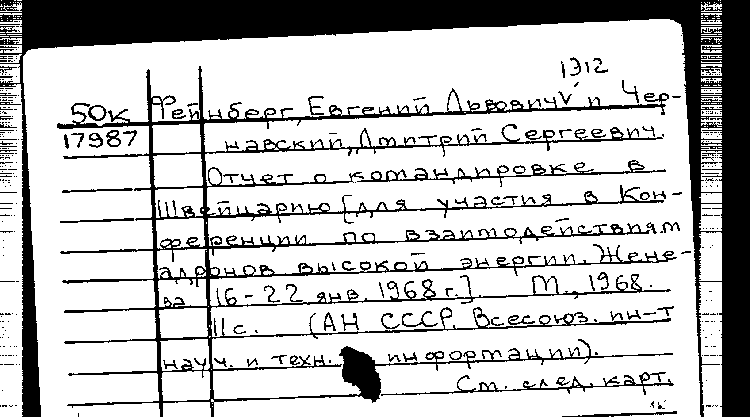 1912
50к Фейнберг, Евгений Львович и Чер-
17987 навский, Дмитрий Сергеевич.
Отчет о командировке в
Швейцарию [для участия в Кон-
ференции по взаимодействиям
адронов высокой энергии. Жене-
ва 16-22 янв. 1968 г.]. М., 1968.
11 с. (АН СССР. Всесоюз. ин-т
науч. и техн. информации).
См. след. карт.